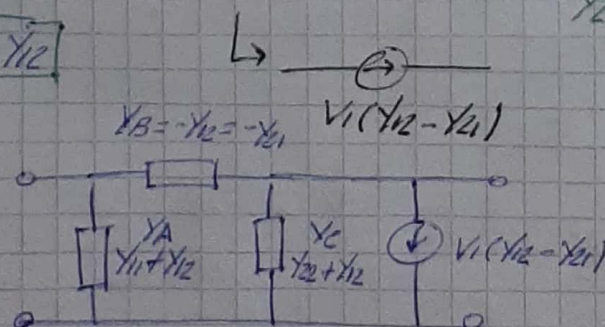 Y12
V1(Y12-Y21)
YB=-Y12=-Y21
YA
Y11+Y12
YC
Y22+Y12
V1(Y12-Y21)